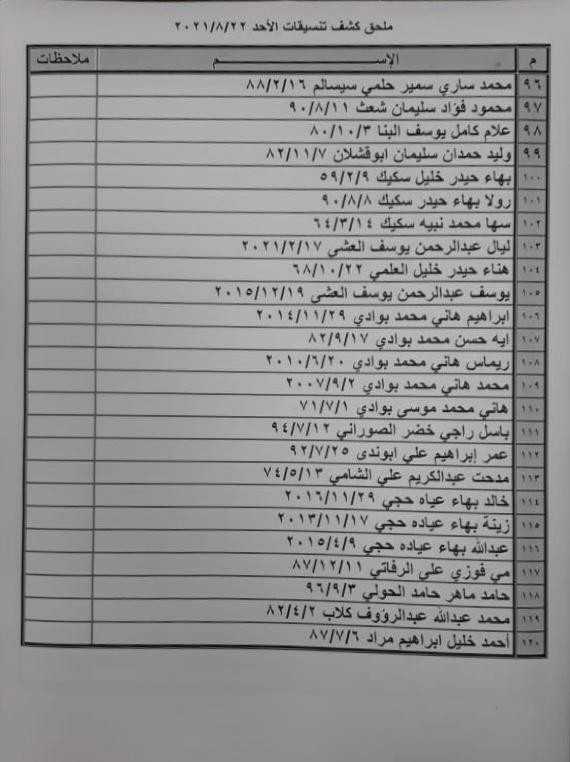 ملحق كشف تنسيقات الأحد ٢٠٢١/٨/٢٢
م الإســـــم ملاحظات
٩٦ محمد ساري سمير حلمي سيسالم ٨٨/٢/١٦
٩٧ محمود فؤاد سليمان شعث ٩٠/٨/١١
٩٨ علام كامل يوسف البنا ٨٠/١٠/٣
٩٩ وليد حمدان سليمان ابوقشلان ٨٢/١١/٧
١٠٠ بهاء حيدر خليل سكيك ٥٩/٢/٩
١٠١ رولا بهاء حيدر سكيك ٩٠/٨/٨
١٠٢ سها محمد نبيه سكيك ٦٤/٣/١٤
١٠٣ ليال عبدالرحمن يوسف العشي ٢٠٢١/٢/١٧
١٠٤ هناء حيدر خليل العلمي ٦٨/١٠/٢٢
١٠٥ يوسف عبدالرحمن يوسف العشي ٢٠١٥/١٢/١٩
١٠٦ ابراهيم هاني محمد بوادي ٢٠١٤/١١/٢٩
١٠٧ ايه حسن محمد بوادي ٨٢/٩/١٧
١٠٨ ريماس هاني محمد بوادي ٢٠١٠/٦/٢٠
١٠٩ محمد هاني محمد بوادي ٢٠٠٧/٩/٢
١١٠ هاني محمد موسى بوادي ٧١/٧/١
١١١ باسل راجي خضر الصوراني ٩٤/٧/١٢
١١٢ عمر إبراهيم علي ابوندى ٩٢/٧/٢٥
١١٣ مدحت عبدالكريم علي الشامي ٧٤/٥/١٣
١١٤ خالد بهاء عياه حجي ٢٠١٦/١١/٢٩
١١٥ زينة بهاء عياده حجي ٢٠١٣/١١/١٧
١١٦ عبدالله بهاء عياده حجي ٢٠١٥/٤/٩
١١٧ مي فوزي علي الرفاتي ٨٧/١٢/١١
١١٨ حامد ماهر حامد الحولي ٩٦/٩/٣
١١٩ محمد عبدالله عبدالرؤوف كلاب ٨٢/٤/٢
١٢٠ أحمد خليل ابراهيم مراد ٨٧/٧/٦